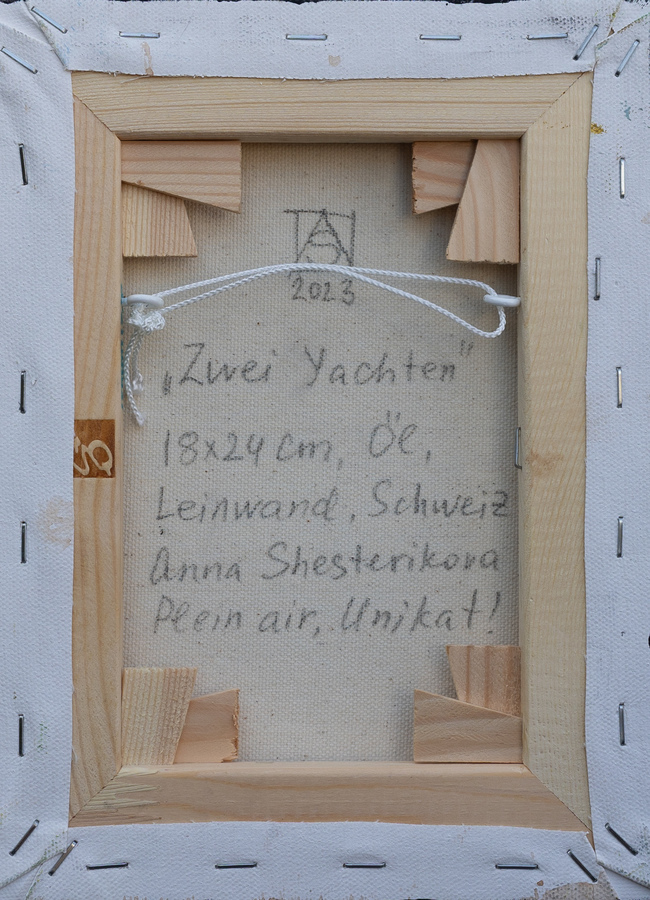 2023
„Zwei Yachten”
18x24 cm, Öl,
Leinwand, Schweiz
Anna Shesterikova
Plein air, Unikat!